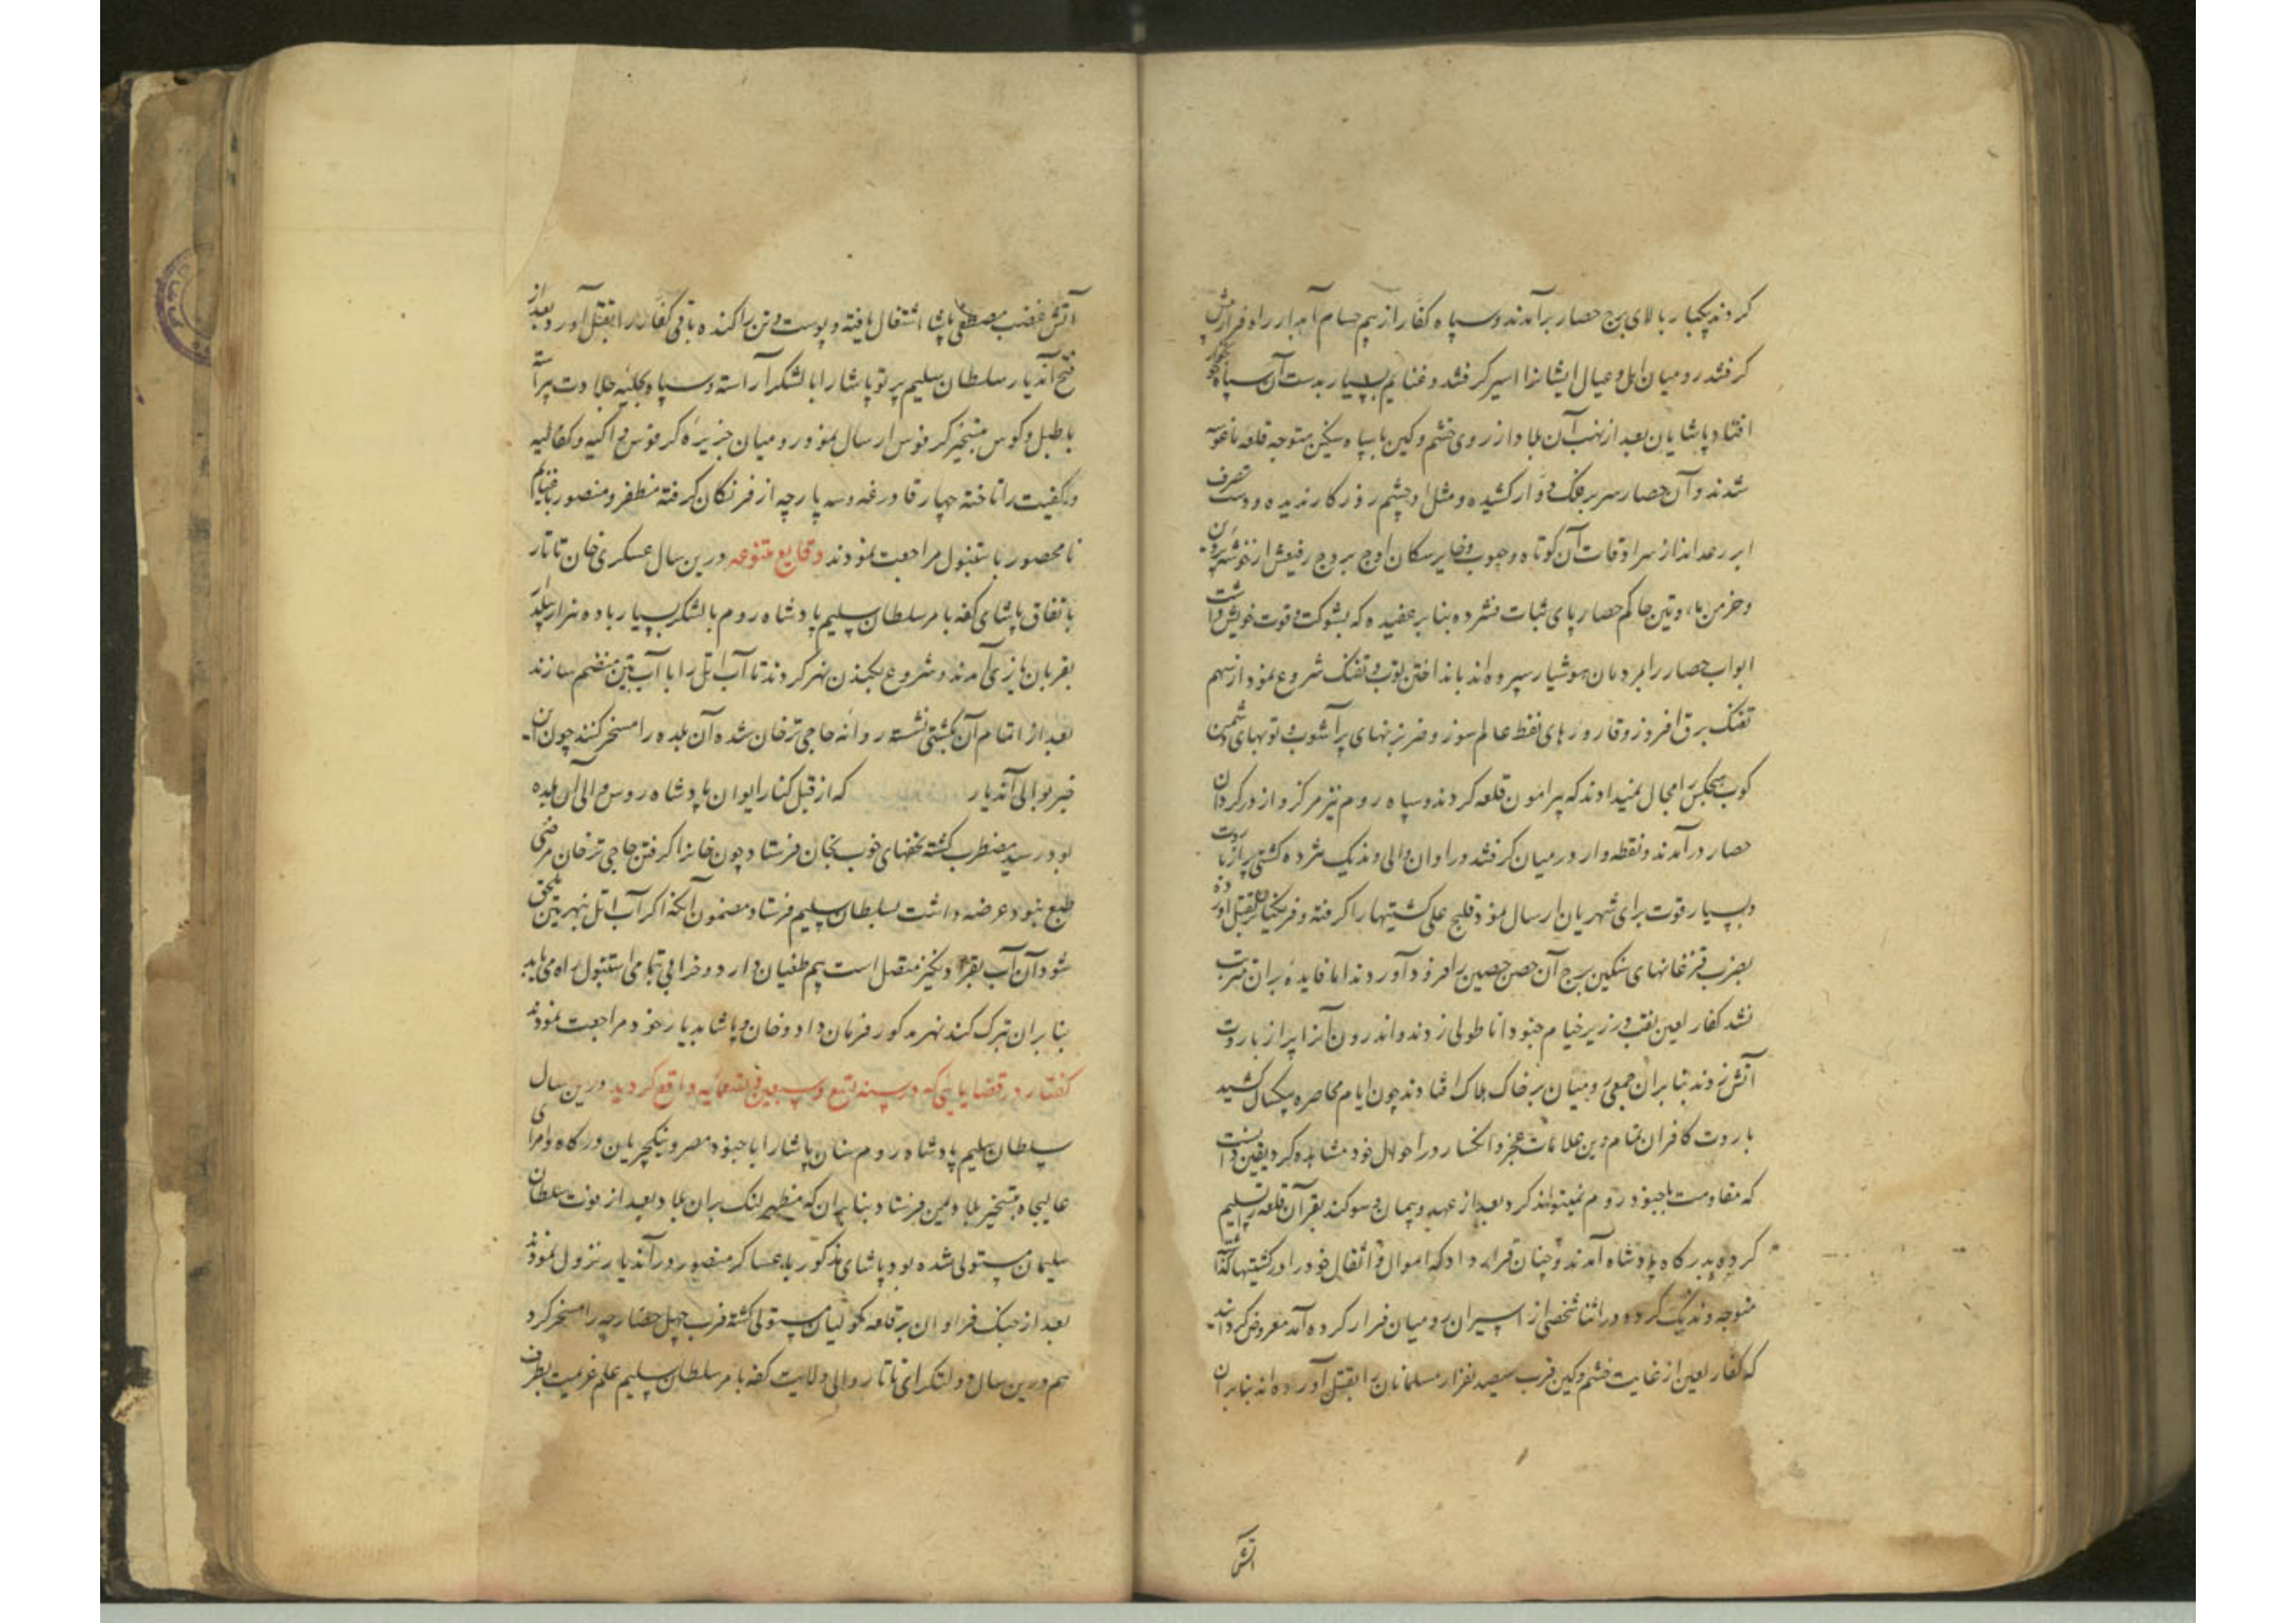 کردند یکبار بالای برج حصار برآمدند و سپاه کفار از بیم حسام آبدار راه فرار پیش
گرفتند رومیان اهل و عیال ایشانرا اسیر گرفتند و غنایم بسیار بدست آن سپاه
افتاد پاشایان بعد از نهب آن بلاد از روی خشم و کین با سپاه سنگین متوجه قلعه ماغوسه
شدند و آن حصار سر بر فلک دوار کشیده و مثل او چشم روزکار ندیده و دست تصرف
ابر رعد انداز سرادقات آن کوتاه و حبوب ذخایر سکان اوج بروج رفیعش از خوشه پروین
و خرمن ماه وتین حاکم حصار پای ثبات فشرده بنابر عقیده که بشوکت و قوت خویش داشت
ابواب حصار را بمردمان هوشیار سپرده اند بانداختن توپ و تفنک شروع نمود از سهم
تفنک برق افروز و قاروره های نفط عالم سوز و ضربزنهای پرآشوب و توپهای دشمن
کوب هیچکس را مجال نمیدادند که پیرامون قلعه کردند و سپاه روم نیز مرکز وار در کرد آن
حصار درآمدند و نقطه وار در میان گرفتند در اوان والی وندیک شانزده کشتی پر از باروت
و بسیار قوت برای شهریان ارسال نمود قلیج علی کشتیها را گرفته و فرنکیانرا بقتل آورده
بضرب قزغانهای سنگین برج آن حصن حصین را فرود آوردند اما فایده بر ان مترتب
نشد کفار لعین نقب در زیر خیام جنود اناطولی زدند و اندرون آنرا پر از باروت
آتش زدند بنابران جمعی رومیان بر خاک هلاک افتادند چون ایام محاصره یکسال کشید
باروت کافران تمام وین علامات عجز و انکسار در احوال خود مشاهده کرد یقین دانست
که مقاومت با جنود روم نمیتواند کرد بعد از عهد و پیمان و سوکند بقرآن قلعه را تسلیم
کرده بدرکاه پادشاه آمدند و چنان قرار داد که اموال و اثقال خود را در کشتیها کذاشته
متوجه وندیک کردد در اثنا شخصی از اسیران رومیان فرار کرده آمد معروض کردانید
که کفار لعین از غایت خشم و کین قرب سیصد نفر از مسلمانان را بقتل آورده اند بنابران
آتش
آتش غضب مصطفی پاشا اشتعال یافته و پوست وتن را کنده باقی کفار را بقتل آورد و بعد از
فتح آندیار سلطان سلیم پرتو پاشا را با لشکر آراسته و سپاه بحلیه جلادت پیراسته
با طبل و کوس بتسخیر کرفوس ارسال نمود رومیان جزیره کرفوس و اکیه و کفالیه
و کفیت را تاخته چهار قادرغه و سه پارچه از فرنکان گرفته مظفر و منصور با غنایم
نامحصور باستنبول مراجعت نمودند وقایع متنوعه درین سال عسکری خان تاتار
باتفاق پاشای کفه بامر سلطان سلیم پادشاه روم با لشکر بسیار با ده هزار بیلدار
بقربان یازی آمدند و شروع بکندن نهر کردند تا آب اتل را با آب تین منضم سازند
بعد از اتمام آن بکشتی نشسته روانه حاجی ترخان شده آن بلده را مسخر کنند چون این
خبر بوالی آندیار که از قبل کنار ایوان پادشاه روس والی آن بلده
بود رسید مضطرب کشته تحفهای خوب بخان فرستاد چون خانرا کرفتن حاجی ترخان مرضی
طبع نبود عرضه داشت بسلطان سلیم فرستاد مضمون آنکه اکر آب اتل بنهر تین ملحق
شود آن آب بقرا دنکیز متصل است بیم طغیان دارد و خرابی بتمامی استنبول راه می یابد
بنابران بترک کند نهر مذکور فرمان داد و خان و پاشا بدیار خود مراجعت نمودند
کفتار در قضایایی که در سنه تسع و سبعین و تسعمائه واقع کردید درین سال
سلطان سلیم پادشاه روم سنان پاشا را با جنود مصر و ینکچریان درگاه و امرای
عالیجاه بتسخیر بلاد یمن فرستاد بنابران که مطهر لنک بران بلاد بعد از فوت سلطان
سلیمان مستولی شده بود پاشای مذکور با عساکر منصور در آندیار نزول نمودند
بعد از جنک فراوان بر قلعه کوکبان مستولی کشته قرب چهل حصارچه را مسخر کرد
هم درین سال دولتکرای تاتار والی ولایت کفه بامر سلطان سلیم علم عزیمت بطرف